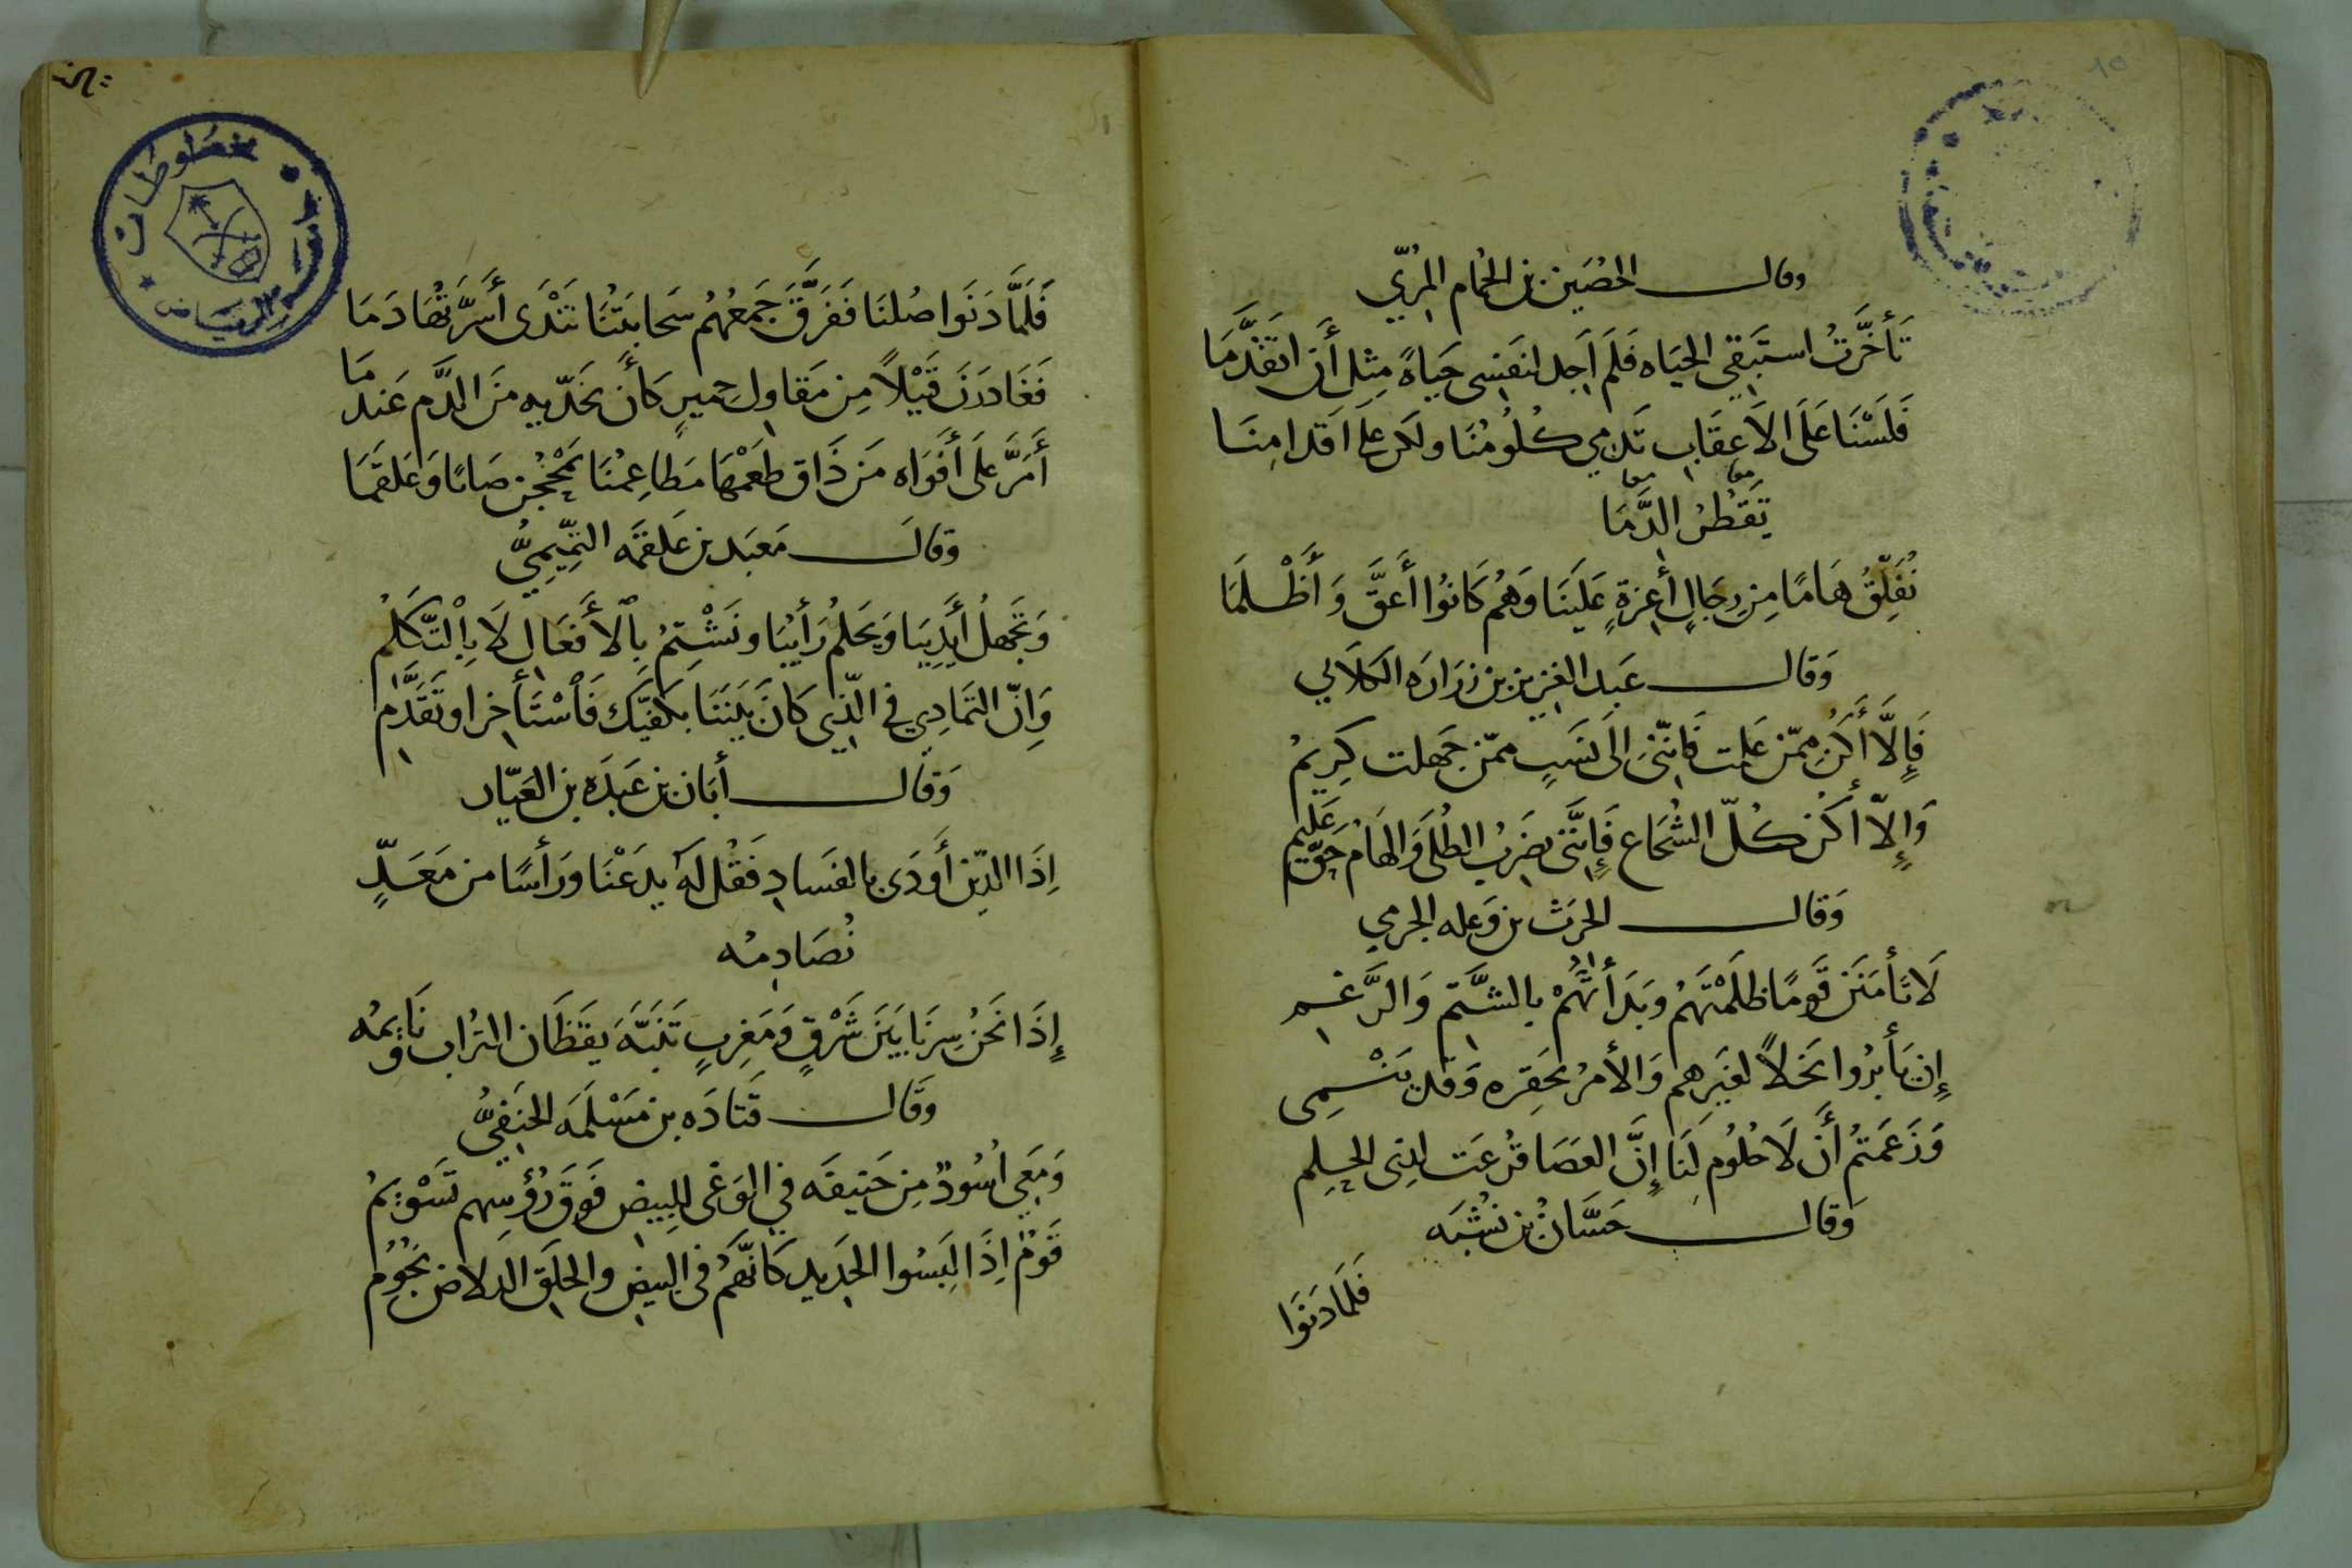 ١٥
وقال الحُصَين بن الحُمام المُرّيّ
تَأخَّرتُ استَبقي الحيَاه فَلَم أَجِد لنَفسِى حَيَاةً مِثلَ أَن اتقَدَّمَا
فَلَسْنَا عَلَى الاَعقَابِ تَدمي كُلُومُنَا ولكن على اَقدامِنَا
معا معا
يَقطُرُ الدَّمَا
نُفَلِّقُ هَامًا مِن رِجَالٍ أَعِزةٍ عَلَينَا وَهُم كَانُوا أَعَقَّ وَأَظْلَمَا
وَقال عَبد العزيز بن زرَارَه الكلاَبي
فَإِلَّا أَكُن مِمّن عَلمت فَإِنّنِى إلَى نَسَبٍ ممّن جَهلت كِريمُ
وَإِلّا أكُن كُلّ الشُجَاعِ فَإِنَّنى بضَربِ الطُلَى وَالهَامِ حَقّ عَليم
وَقال الحرث بن وَعله الجرمي
لَا تَأمَنَن قَومًا ظَلَمْتَهُم وبَدَأتَهُمْ بالشَّتم وَالرَّغم
إِن يَأبرُوا نَخلًا لغَيرهم وَالأمرُ تحقِره وَقد يَنْمِى
وَزَعَمتُم أَن لَا حُلُومَ لَنَا إِنَّ العَصَا قُرعَت لذِى الحِلم
وَقال حَسَّانُ بن نُشْبَه
فَلَما دَنَوا
فَلَمَّا دَنَوا صُلنَا فَفَرَّقَ جَمعَهُم سَحابَتُنَا تَندَى أَسِرَّتُهَا دَمَا
فَغَادَرنَ قَيْلاً مِن مَقاولِ حِميرٍ كَأَن بخَدّيهِ منَ الدَّم عَندمَا
أَمَرَّ عَلَى أَفوَاه مَن ذَاق طَعمَهَا مَطاعِمُنَا يَمْجُجن صَابًا وَعَلقَمَا
وَقالَ مَعبَد بن عَلقَمَه التمِّيميُّ
وَتَجهلُ أَيدِينَا وَيَحلمُ رَأينَا ونَشْتِمُ بِالأَفعَالِ لَا بِالتَّكَلُم
وَإِنّ التمَادِي في الّذِي كَانَ بَينَنَا بكفيّك فَاسْتَأخِر او تقَدَّم
وَقَال أبَان بن عَبدَه بن العَيّار
إذَا الدِّين أَودَى بالفسَادِ فَقُل لَه يدَعْنَا ورَأسًا من مَعَدٍّ
نُصَادِمُه
إذَا نَحنُ سِرنَا بَينَ شَرْقٍ وَمَغربٍ تَنَبَّهَ يَقظَان التراب وَنَايمُه
وَقال قتَادَه بن مَسْلَمَه الحنَفيُّ
وَمَعي أسُودٌ مِن حَنيفَه في الوَغى للبِيضِ فَوقَ رُؤسِهم تَسْويمُ
قَومٌ إذَا لَبَسُوا الحَديد كَأنَّهُم في البيضِ والحلَقِ الدلاصِ نجُومُ
مخطوطات
الرياض